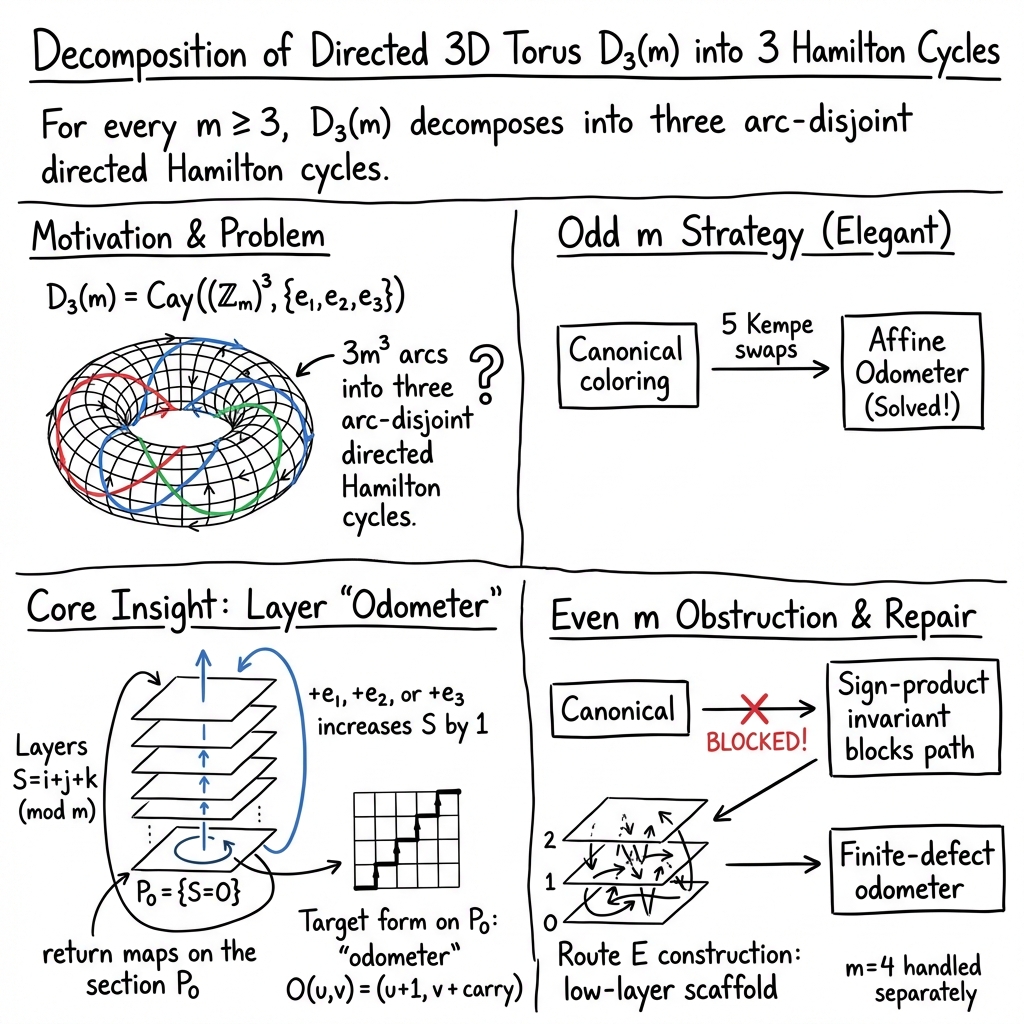 Decomposition of Directed 3D Torus D₃(m) into 3 Hamilton Cycles
For every m ≥ 3, D₃(m) decomposes into three arc-disjoint
directed Hamilton cycles.
Motivation & Problem
D₃(m) = Cay((ℤₘ)³,{e₁,e₂,e₃})
3m³ arcs
into three
arc-disjoint
directed
Hamilton
cycles.
?
Odd m Strategy (Elegant)
Canonical
coloring
5 Kempe
swaps
Affine
Odometer
(Solved!)
Core Insight: Layer "Odometer"
Layers
S=i+j+k
(mod m)
+e₁, +e₂, or +e₃
increases S by 1
P₀ = {S=0}
return maps on the
section P₀
Target form on P₀:
"odometer"
O(u,v) = (u+1, v + carry)
Even m Obstruction & Repair
Canonical
BLOCKED!
Sign-product
invariant
blocks path
2
1
0
Finite-defect
odometer
Route E construction:
low-layer scaffold
m=4 handled
separately